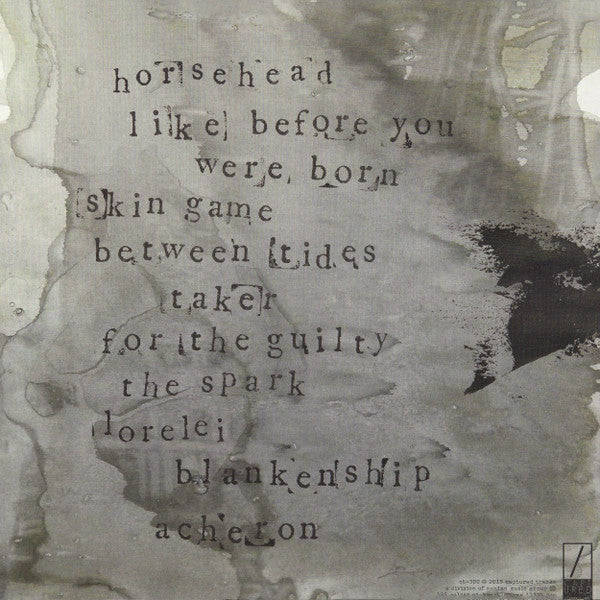 horsehead
like before you
were born
skin game
between tides
taker
for the guilty
the spark
lorelei
blankenship
acheron
© 2015 captured tracks
a division of omnian music group